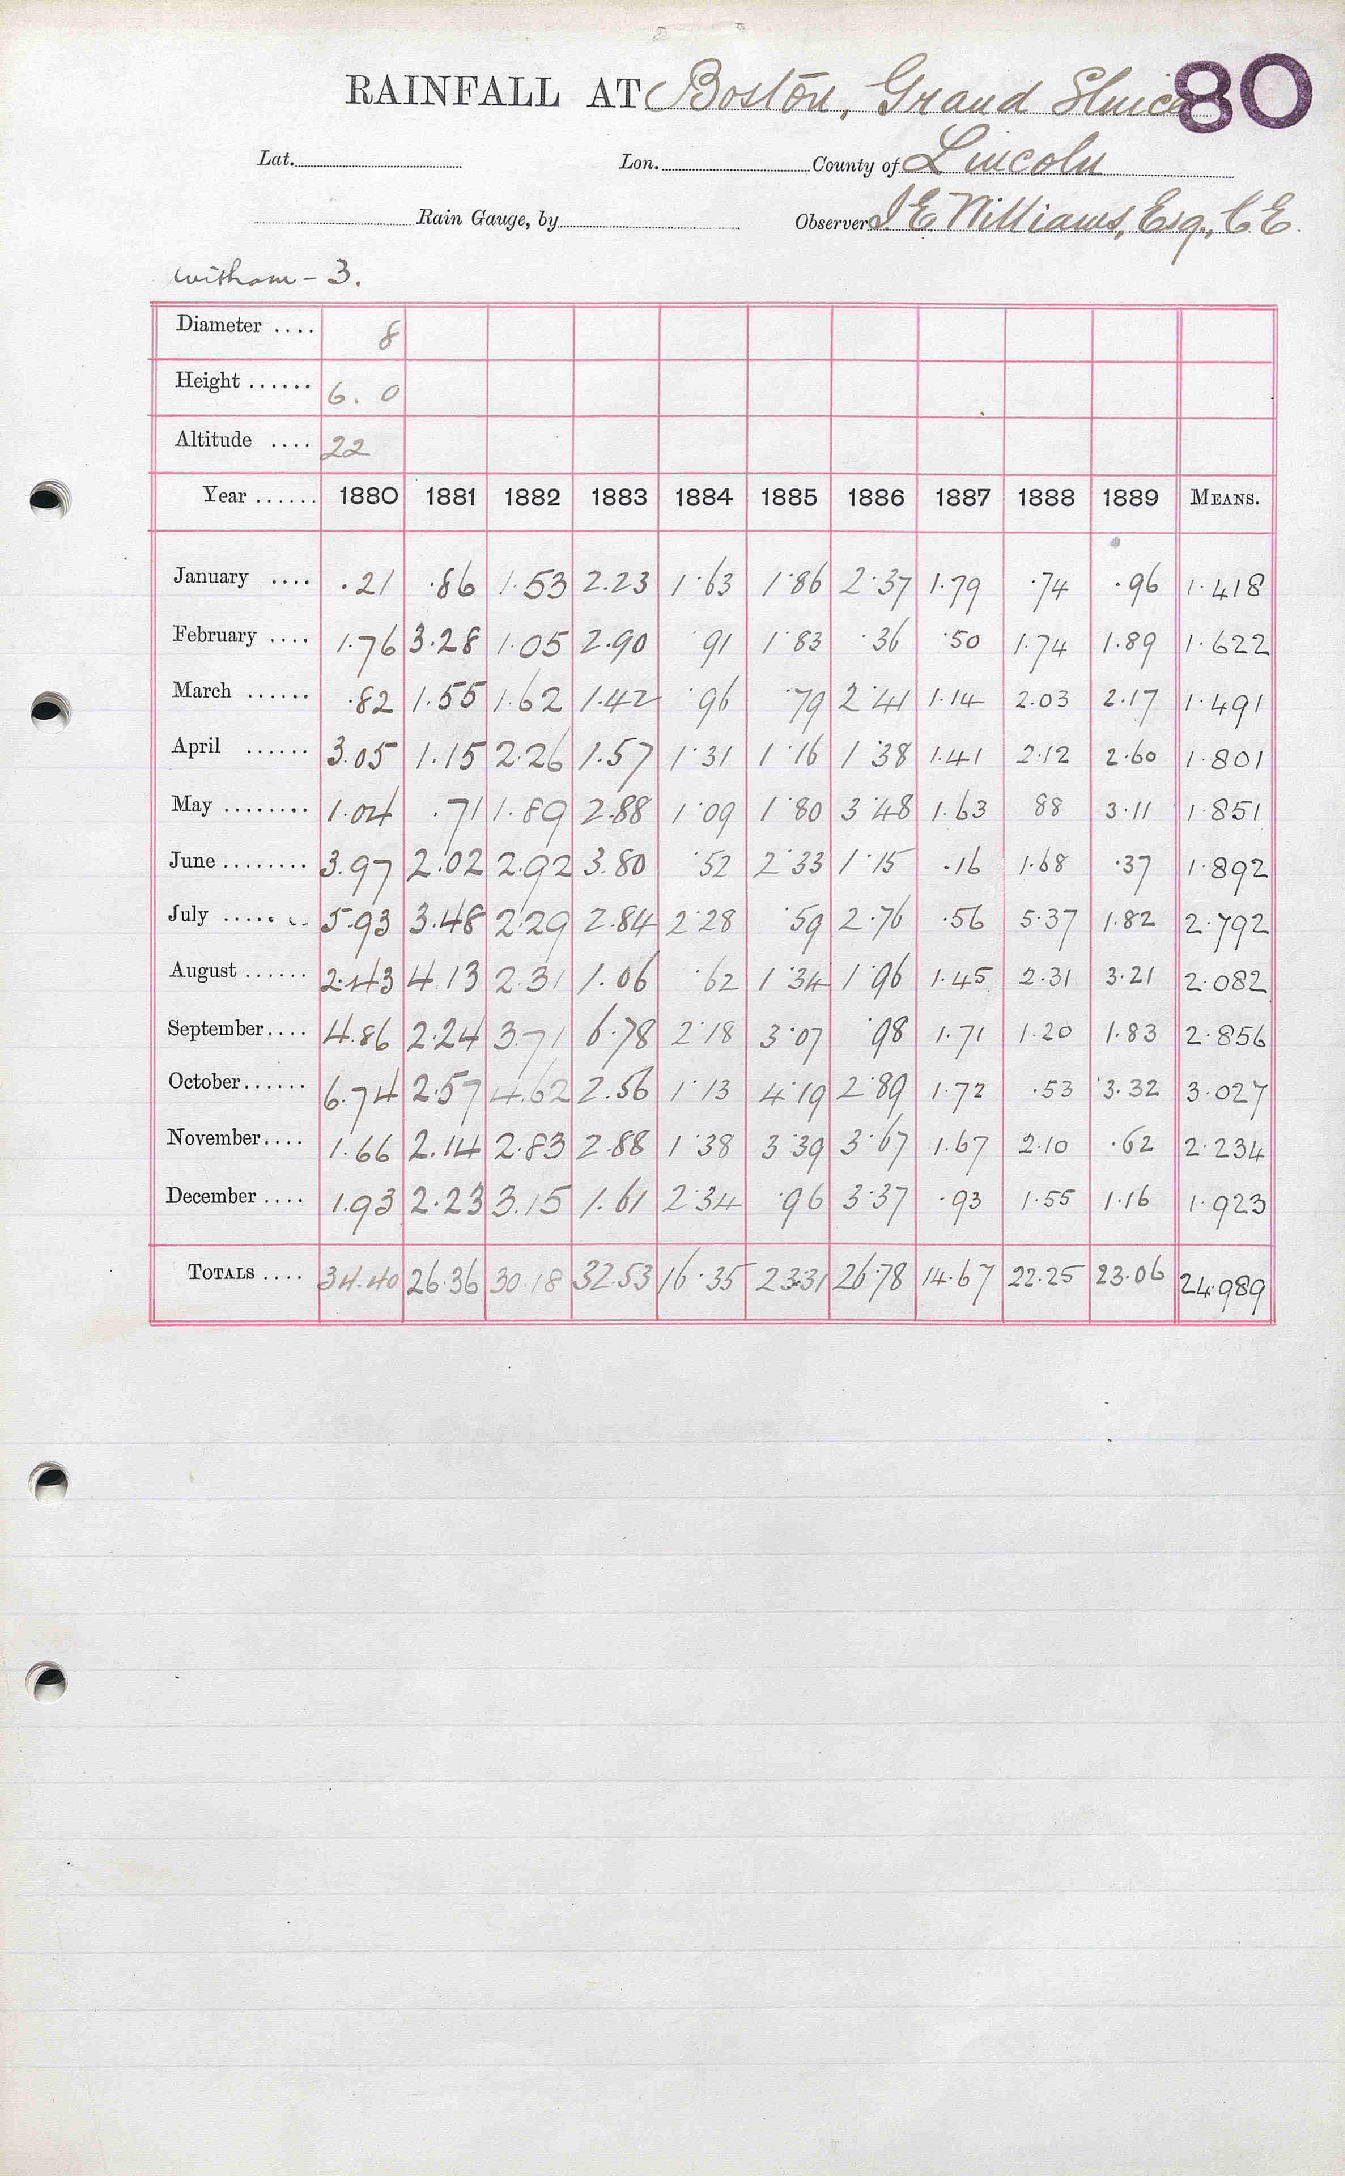 RAINFALL AT Boston, Grand Sluice 80
Lat. Lon. County of Lincoln
Rain Gauge, by Observer J E Williams, Esq., C.E.
Witham - 3.
Diameter .... 8
Height ...... 6. 0
Altitude .... 22
Year ...... 1880 1881 1882 1883 1884 1885 1886 1887 1888 1889 MEANS.
January .... .21 .86 1.53 2.23 1.63 1.86 2.37 1.79 .74 .96 1.418
February .... 1.76 3.28 1.05 2.90 .91 1.83 .36 .50 1.74 1.89 1.622
March ...... .82 1.55 1.62 1.42 .96 .79 2.41 1.14 2.03 2.17 1.491
April ...... 3.05 1.15 2.26 1.57 1.31 1.16 1.38 1.41 2.12 2.60 1.801
May ........ 1.04 .71 1.89 2.88 1.09 1.80 3.48 1.63 88 3.11 1.851
June ........ 3.97 2.02 2.92 3.80 .52 2.33 1.15 .16 1.68 .37 1.892
July ........ 5.93 3.48 2.29 2.84 2.28 .59 2.76 .56 5.37 1.82 2.792
August ...... 2.43 4.13 2.31 1.06 .62 1.34 1.96 1.45 2.31 3.21 2.082
September.... 4.86 2.24 3.71 6.78 2.18 3.07 .98 1.71 1.20 1.83 2.856
October...... 6.74 2.57 4.62 2.56 1.13 4.19 2.89 1.72 .53 3.32 3.027
November.... 1.66 2.14 2.83 2.88 1.38 3.39 3.67 1.67 2.10 .62 2.234
December .... 1.93 2.23 3.15 1.61 2.34 .96 3.37 .93 1.55 1.16 1.923
TOTALS .... 34.40 26.36 30.18 32.53 16.35 23.31 26.78 14.67 22.25 23.06 24.989